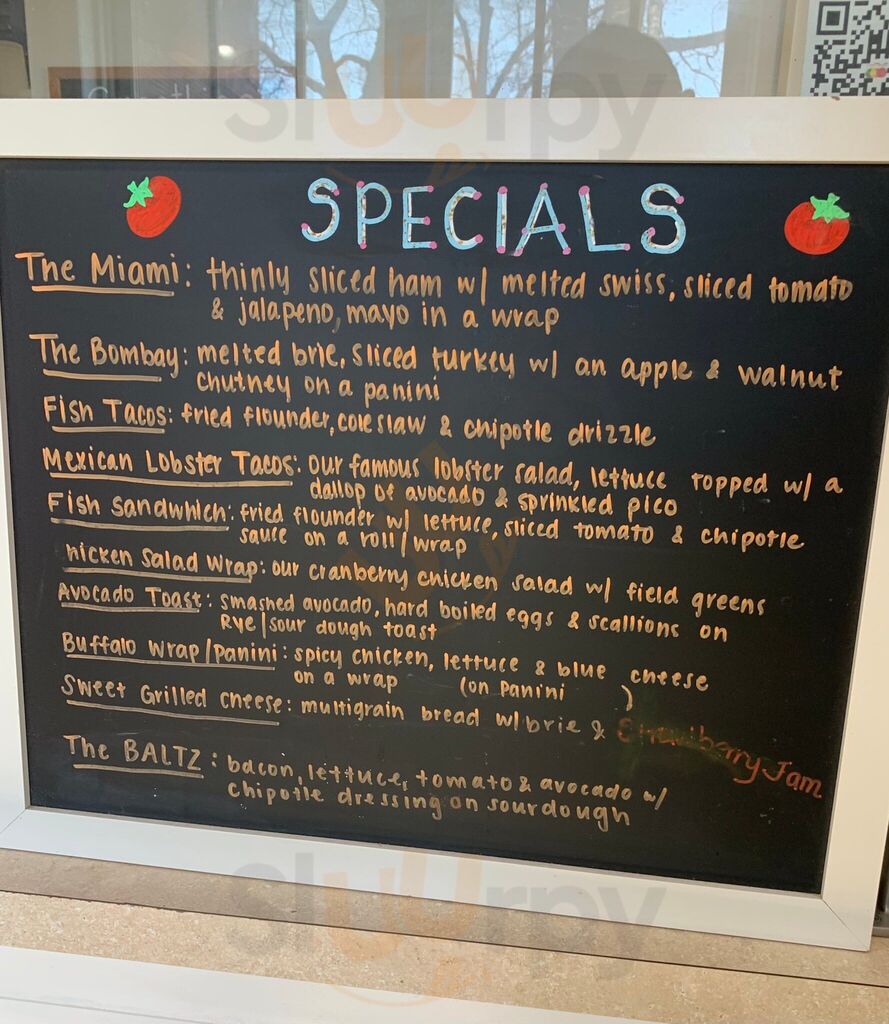 SPECIALS
The Miami: thinly sliced ham w/ melted swiss, sliced tomato
& jalapeno, mayo in a wrap
The Bombay: melted brie, sliced turkey w/ an apple & walnut
chutney on a panini
Fish Tacos: fried flounder, coleslaw & chipotle drizzle
Mexican Lobster Tacos: our famous lobster salad, lettuce topped w/ a
dallop of avocado & sprinkled pico
Fish Sandwhich: fried flounder w/ lettuce, sliced tomato & chipotle
sauce on a roll/wrap
hicken Salad Wrap: our cranberry chicken salad w/ field greens
Avocado Toast: smashed avocado, hard boiled eggs & scallions on
Rye/sour dough toast
Buffalo Wrap/Panini: spicy chicken, lettuce & blue cheese
on a wrap (on panini )
Sweet Grilled Cheese: multigrain bread w/ brie & Strawberry Jam
The BALTZ: bacon, lettuce, tomato & avocado w/
chipotle dressing on sourdough
Sluurpy
Sluurpy